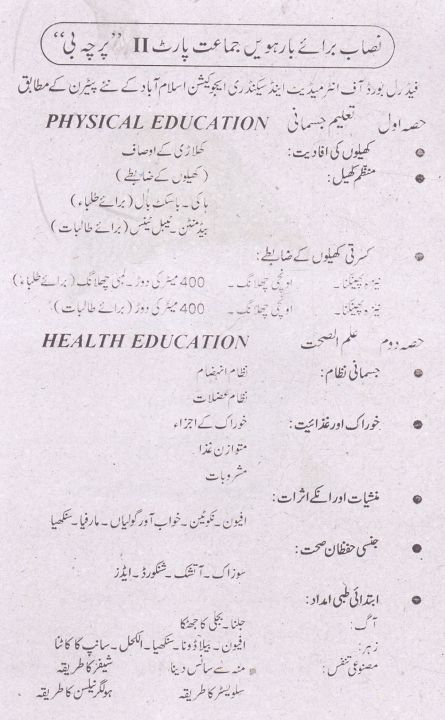 نصاب برائے بارہویں جماعت پارٹ II ”پرچہ بی“
فیڈرل بورڈ آف انٹرمیڈیٹ اینڈ سیکنڈری ایجوکیشن اسلام آباد کے نئے پیٹرن کے مطابق
حصہ اول تعلیم جسمانی PHYSICAL EDUCATION
● کھیلوں کی افادیت: کھلاڑی کے اوصاف
● منظم کھیل: (کھیلوں کے ضابطے)
ہاکی۔ باسکٹ بال (برائے طلباء)
بیڈمنٹن۔ ٹیبل ٹینس (برائے طالبات)
● کسرتی کھیلوں کے ضابطے:
نیزہ پھینکنا۔ اونچی چھلانگ۔ 400 میٹر کی دوڑ۔ لمبی چھلانگ (برائے طلباء)
نیزہ پھینکنا۔ اونچی چھلانگ۔ 400 میٹر کی دوڑ (برائے طالبات)
حصہ دوم علم الصحت HEALTH EDUCATION
● جسمانی نظام: نظام انہضام
نظام عضلات
● خوراک اور غذائیت: خوراک کے اجزاء
متوازن غذا
مشروبات
● منشیات اور انکے اثرات:
افیون۔ نکوٹین۔ خواب آور گولیاں۔ مارفیا۔ سنکھیا
● جنسی حفظان صحت:
سوزاک۔ آتشک۔ شنکورڈ۔ ایڈز
● ابتدائی طبی امداد:
آگ: جلنا۔ بجلی کا جھٹکا
زہر: افیون۔ بیلاڈونا۔ سنکھیا۔ الکحل۔ سانپ کا کاٹنا
مصنوعی تنفس: منہ سے سانس دینا شیفر کا طریقہ
سلویسٹر کا طریقہ ہولگر نیلسن کا طریقہ